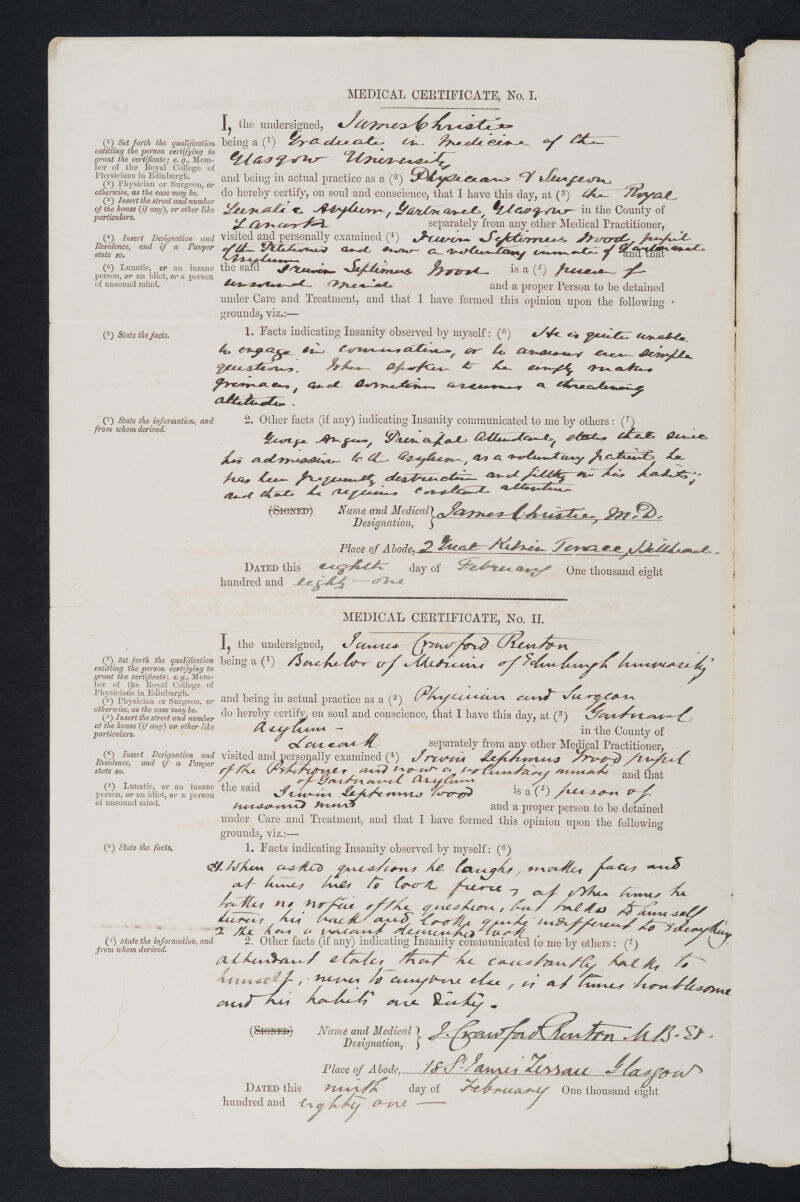 MEDICAL CERTIFICATE, No. I.
I, the undersigned, James Christie
(1) Set forth the qualification entitling the person certifying to grant the certificate; e. g., Member of the Royal College of Physicians in Edinburgh.
being a (1) Graduate in Medicine of the
Glasgow University
(2) Physician or Surgeon, or otherwise, as the case may be.
and being in actual practice as a (2) Physician & Surgeon
(3) Insert the street and number of the house (if any), or other like particulars.
do hereby certify, on soul and conscience, that I have this day, at (3) the Royal
Lunatic Asylum, Gartnavel, Glasgow in the County of
Lanark separately from any other Medical Practitioner,
(4) Insert Designation and Residence, and if a Pauper state so.
visited and personally examined (4) Irwin Septimus Wood, pupil
of the Petitioner and now a voluntary inmate of Gartnavel
Asylum and that
(5) Lunatic, or an insane person, or an idiot, or a person of unsound mind.
the said Irwin Septimus Wood is a (5) person of
unsound mind and a proper Person to be detained
under Care and Treatment, and that I have formed this opinion upon the following
grounds, viz.:—
(6) State the facts.
1. Facts indicating Insanity observed by myself: (6) He is quite unable
to engage in conversation, or to answer even simple
questions. When spoken to he simply makes
grimaces, and sometimes assumes a threatening
attitude.
(7) State the information, and from whom derived.
2. Other facts (if any) indicating Insanity communicated to me by others: (7)
George Angus, Principal Attendant, states that since
his admission to the Asylum, as a voluntary patient, he
has been frequently destructive and filthy in his habits;
and that he requires constant attention
(Signed) Name and Medical Designation, } James Christie, M.D.
Place of Abode, 2 Great Kelvin Terrace, Hillhead.
Dated this eighth day of February One thousand eight
hundred and eighty-one
MEDICAL CERTIFICATE, No. II.
I, the undersigned, James Crawford Renton
(1) Set forth the qualification entitling the person certifying to grant the certificate; e. g., Member of the Royal College of Physicians in Edinburgh.
being a (1) Bachelor of Medicine of Edinburgh University
(2) Physician or Surgeon, or otherwise, as the case may be.
and being in actual practice as a (2) Physician and Surgeon
(3) Insert the street and number of the house (if any) or other like particulars.
do hereby certify, on soul and conscience, that I have this day, at (3) Gartnavel
Asylum – in the County of
Lanark separately from any other Medical Practitioner,
(4) Insert Designation and Residence, and if a Pauper state so.
visited and personally examined (4) Irwin Septimus Wood pupil
of the Petitioner, and now a voluntary inmate
of Gartnavel Asylum and that
(5) Lunatic, or an insane person, or an idiot, or a person of unsound mind.
the said Irwin Septimus Wood is a (5) person of
unsound mind and a proper person to be detained
under Care and Treatment, and that I have formed this opinion upon the following
grounds, viz.:—
(6) State the facts.
1. Facts indicating Insanity observed by myself: (6)
When asked questions he laughs, makes faces and
at times tries to look fierce, at other times he
takes no notice of the question, but talks to himself
turns his back and looks quite indifferent to everything
& he has a vacant demented look
(7) State the information, and from whom derived.
2. Other facts (if any) indicating Insanity communicated to me by others: (7)
Attendant states that he constantly talks to
himself, never to anyone else, is at times troublesome
and his habits are dirty.
(Signed) Name and Medical Designation, } J. Crawford Renton M.B. Ed.
Place of Abode, 18 St. James's Terrace Glasgow
Dated this ninth day of February One thousand eight
hundred and eighty one —